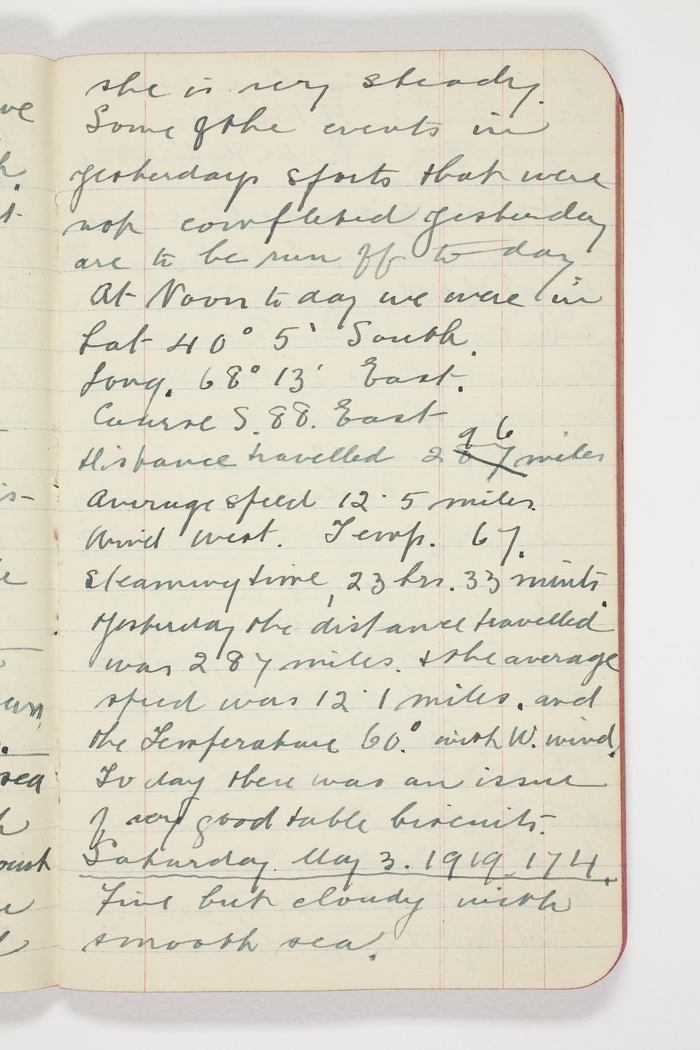 she is very steady.
Some of the events in
yesterdays sports that were
not completed yesterday
are to be run off to day
At Noon to day we were in
Lat 40° 5' South.
Long. 68° 13' East.
Course S. 88. East
96
Distance travelled 287 miles
Average speed 12.5 miles.
Wind West. Temp. 67.
Steaming time, 23 hrs. 33 minits.
Yesterday the distance travelled
was 287 miles. & the average
speed was 12.1 miles. and
the Temperature 60.° with W. wind.
To day there was an issue
of very good table biscuits.
Saturday. May 3. 1919. 174.
Fine but cloudy with
smooth sea.